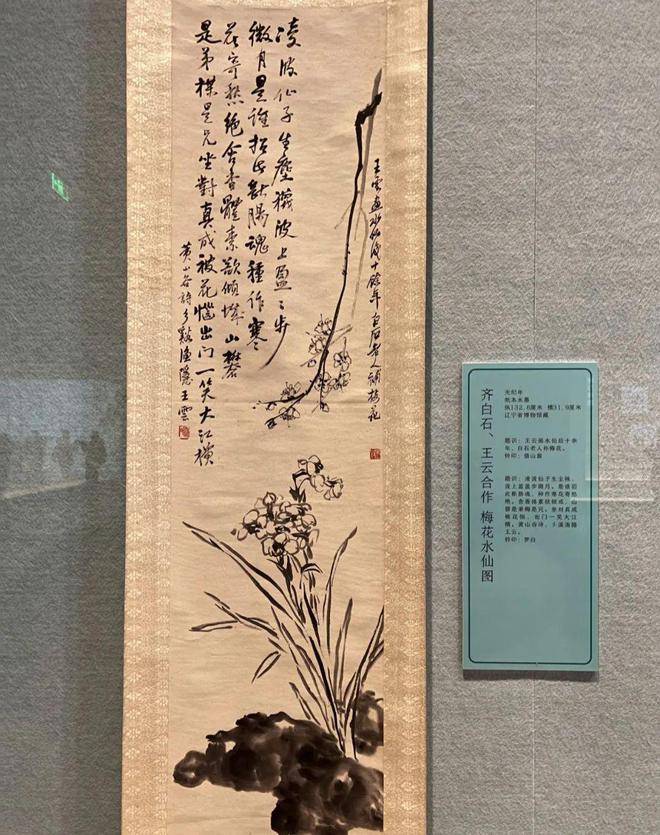 王雲畫水仙後十餘年白石老人補梅花
凌波仙子生塵襪波上盈〻步
微月是誰招此斷腸魂種作寒
花寄愁絕含香體素欲傾城山礬
是弟楳是兄坐對真成被花惱出門一笑大江橫
黃山谷詩 谿漁隱王雲
齐白石、王云合作 梅花水仙图
无纪年
纸本水墨
纵132.6厘米 横31.9厘米
辽宁省博物馆藏
题识：王云画水仙后十余
年，白石老人补梅花。
钤印：借山翁
题识：凌波仙子生尘袜，
波上盈盈步微月。是谁招
此断肠魂，种作寒花寄愁
绝。含香体素欲倾城，山
礬是弟梅是兄。坐对真成
被花恼，出门一笑大江
横。黄山谷诗，溪渔隐
王云。
钤印：梦白